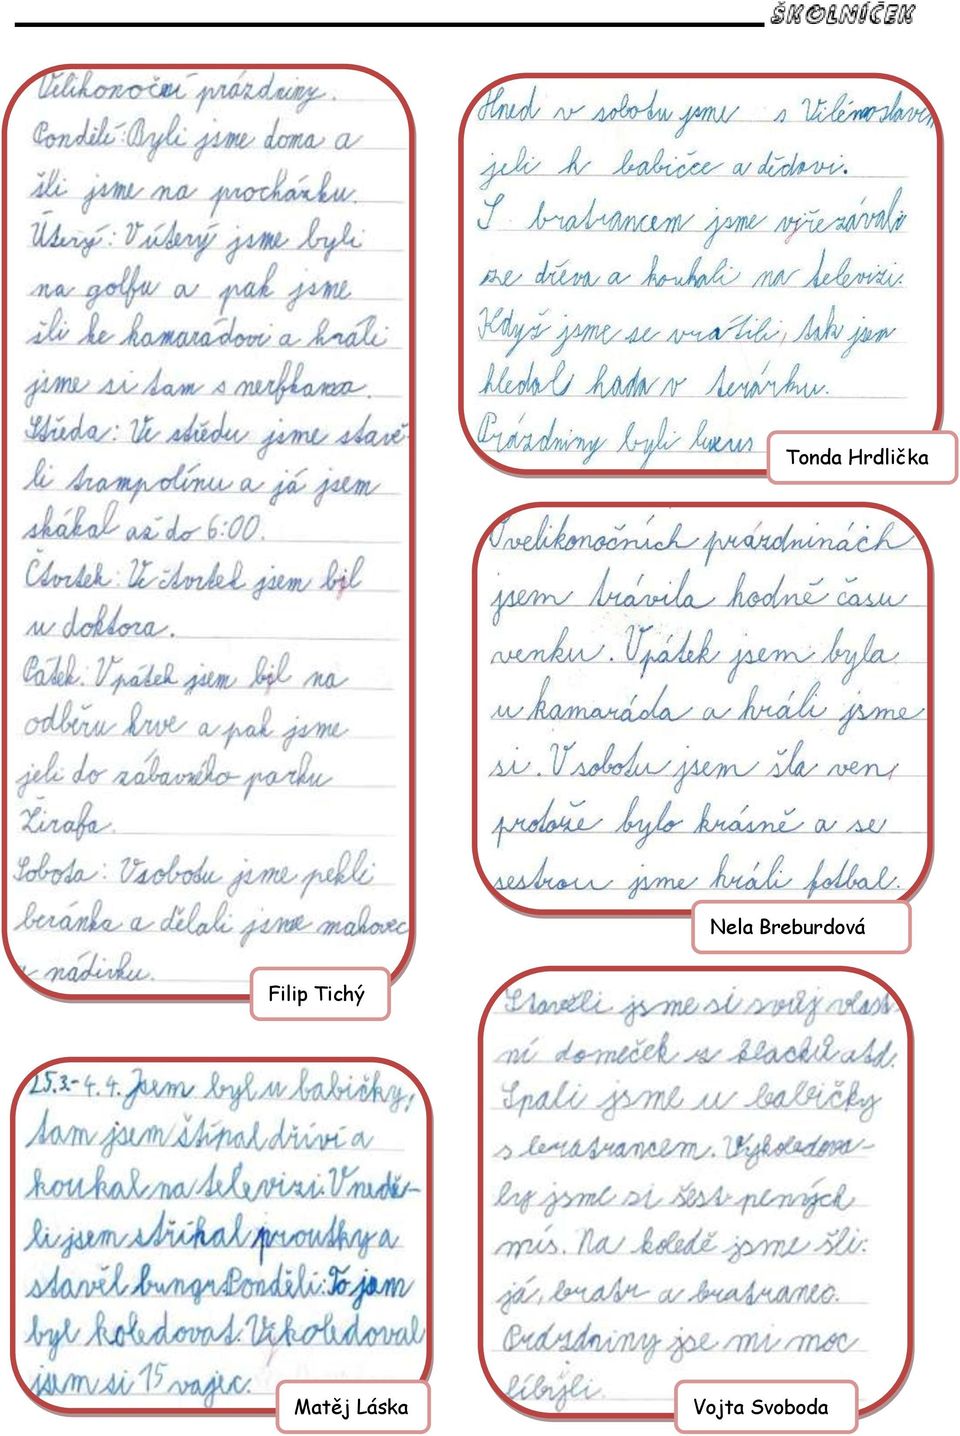 ŠKOLNÍČEK
Velikonoční prázdniny.
Pondělí: Byli jsme doma a
šli jsme na procházku.
Úterý: V úterý jsme byli
na golfu a pak jsme
šli ke kamarádovi a hráli
jsme si tam s nerfkama.
Středa: Ve středu jsme stavě-
li trampolínu a já jsem
skákal až do 6:00.
Čtvrtek: Ve čtvrtek jsem byl
u doktora.
Pátek: V pátek jsem byl na
odběru krve a pak jsme
jeli do zábavného parku
Žirafa.
Sobota: V sobotu jsme pekli
beránka a dělali jsme makovec
a nádivku.
Filip Tichý
Hned v sobotu jsme s Vilémoslavem
jeli k babičce a dědovi.
S bratrancem jsme vyřezávali
ze dřeva a koukali na televizi.
Když jsme se vrátili, tak jsem
hledal hada v terárku.
Prázdniny byli luxus
Tonda Hrdlička
O velikonočních prázdninách
jsem trávila hodně času
venku. V pátek jsem byla
u kamaráda a hráli jsme
si. V sobotu jsem šla ven,
protože bylo krásně a se
sestrou jsme hráli fotbal.
Nela Breburdová
25.3.-4.4. Jsem byl u babičky,
tam jsem štípal dříví a
koukal na televizi. V nedě-
li jsem stříhal proutky a
stavěl bungr. Pondělí: To jsem
byl koledovat. Vikoledoval
jsem si 15 vajec.
Matěj Láska
Stavěli jsme si svůj vlast-
ní domeček z klacků atd.
Spali jsme u babičky
s bratrancem. Vykoledova-
ly jsme si šest pených
mis. Na koledě jsme šli:
já, bratr a bratranec.
Prázdniny jse mi moc
líbyli.
Vojta Svoboda